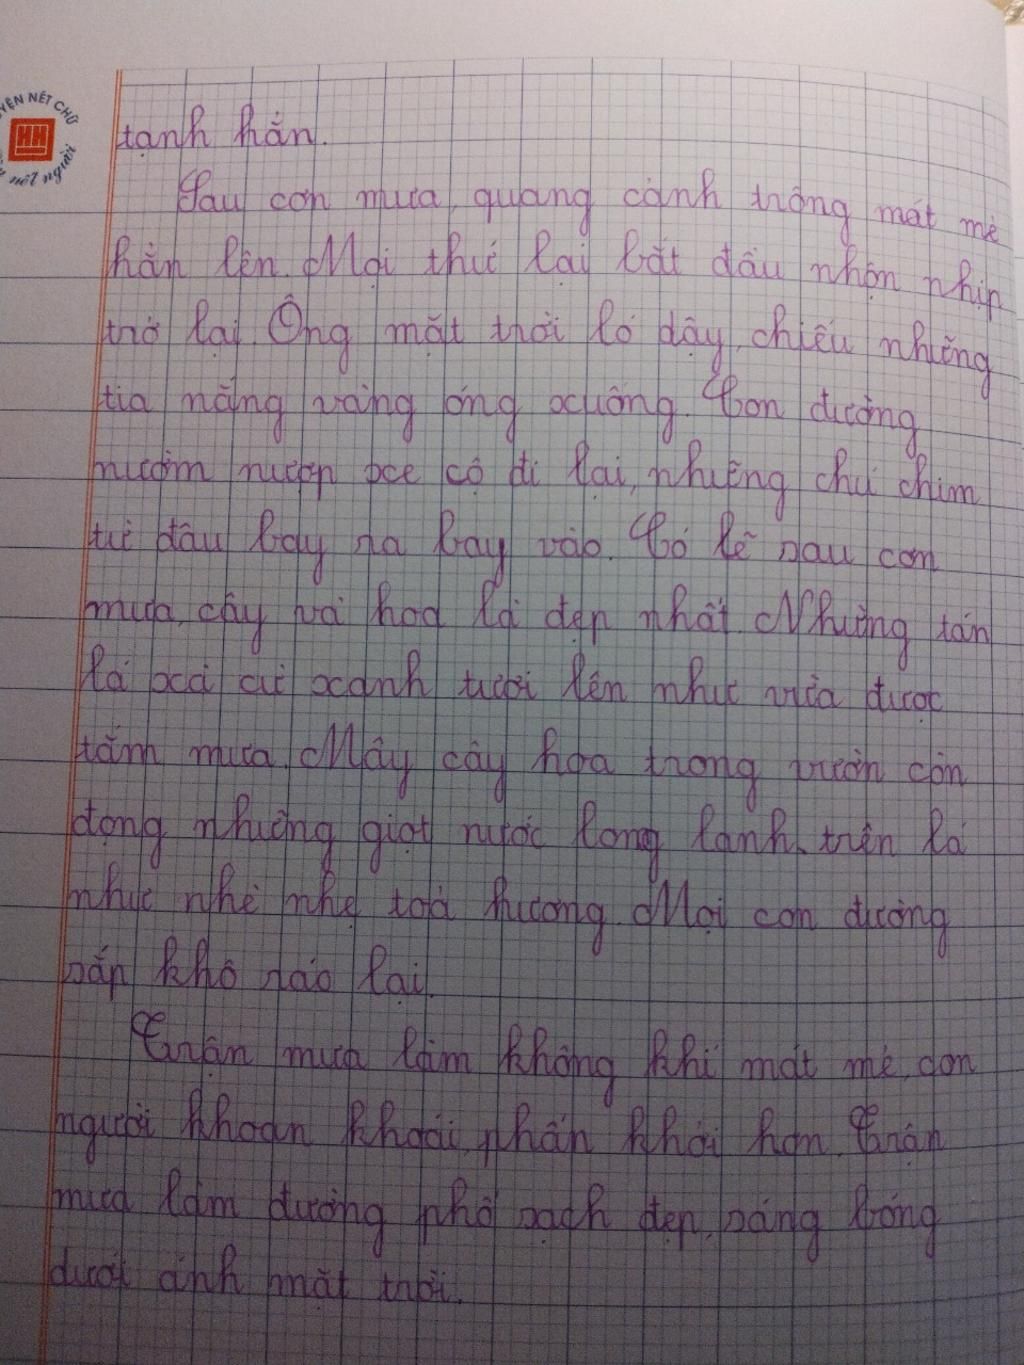 LUYỆN NẾT CHỮ
HH
nết người
tạnh hẳn.
Sau cơn mưa, quang cảnh trông mát mẻ
hẳn lên. Mọi thứ lại bắt đầu nhộn nhịp
trở lại. Ông mặt trời ló dậy, chiếu những
tia nắng vàng óng xuống. Con đường
nườm nượp xe cộ đi lại, những chú chim
từ đâu bay ra bay vào. Có lẽ sau cơn
mưa, cây và hoa là đẹp nhất. Những tán
lá xà cừ xanh tươi lên như vừa được
tắm mưa. Mấy cây hoa trong vườn còn
đọng những giọt nước long lanh trên lá
như nhè nhẹ toả hương. Mọi con đường
sắp khô ráo lại.
Trận mưa làm không khí mát mẻ, con
người khoan khoái, phấn khởi hơn. Trận
mưa làm đường phố sạch đẹp, sáng bóng
dưới ánh mặt trời.